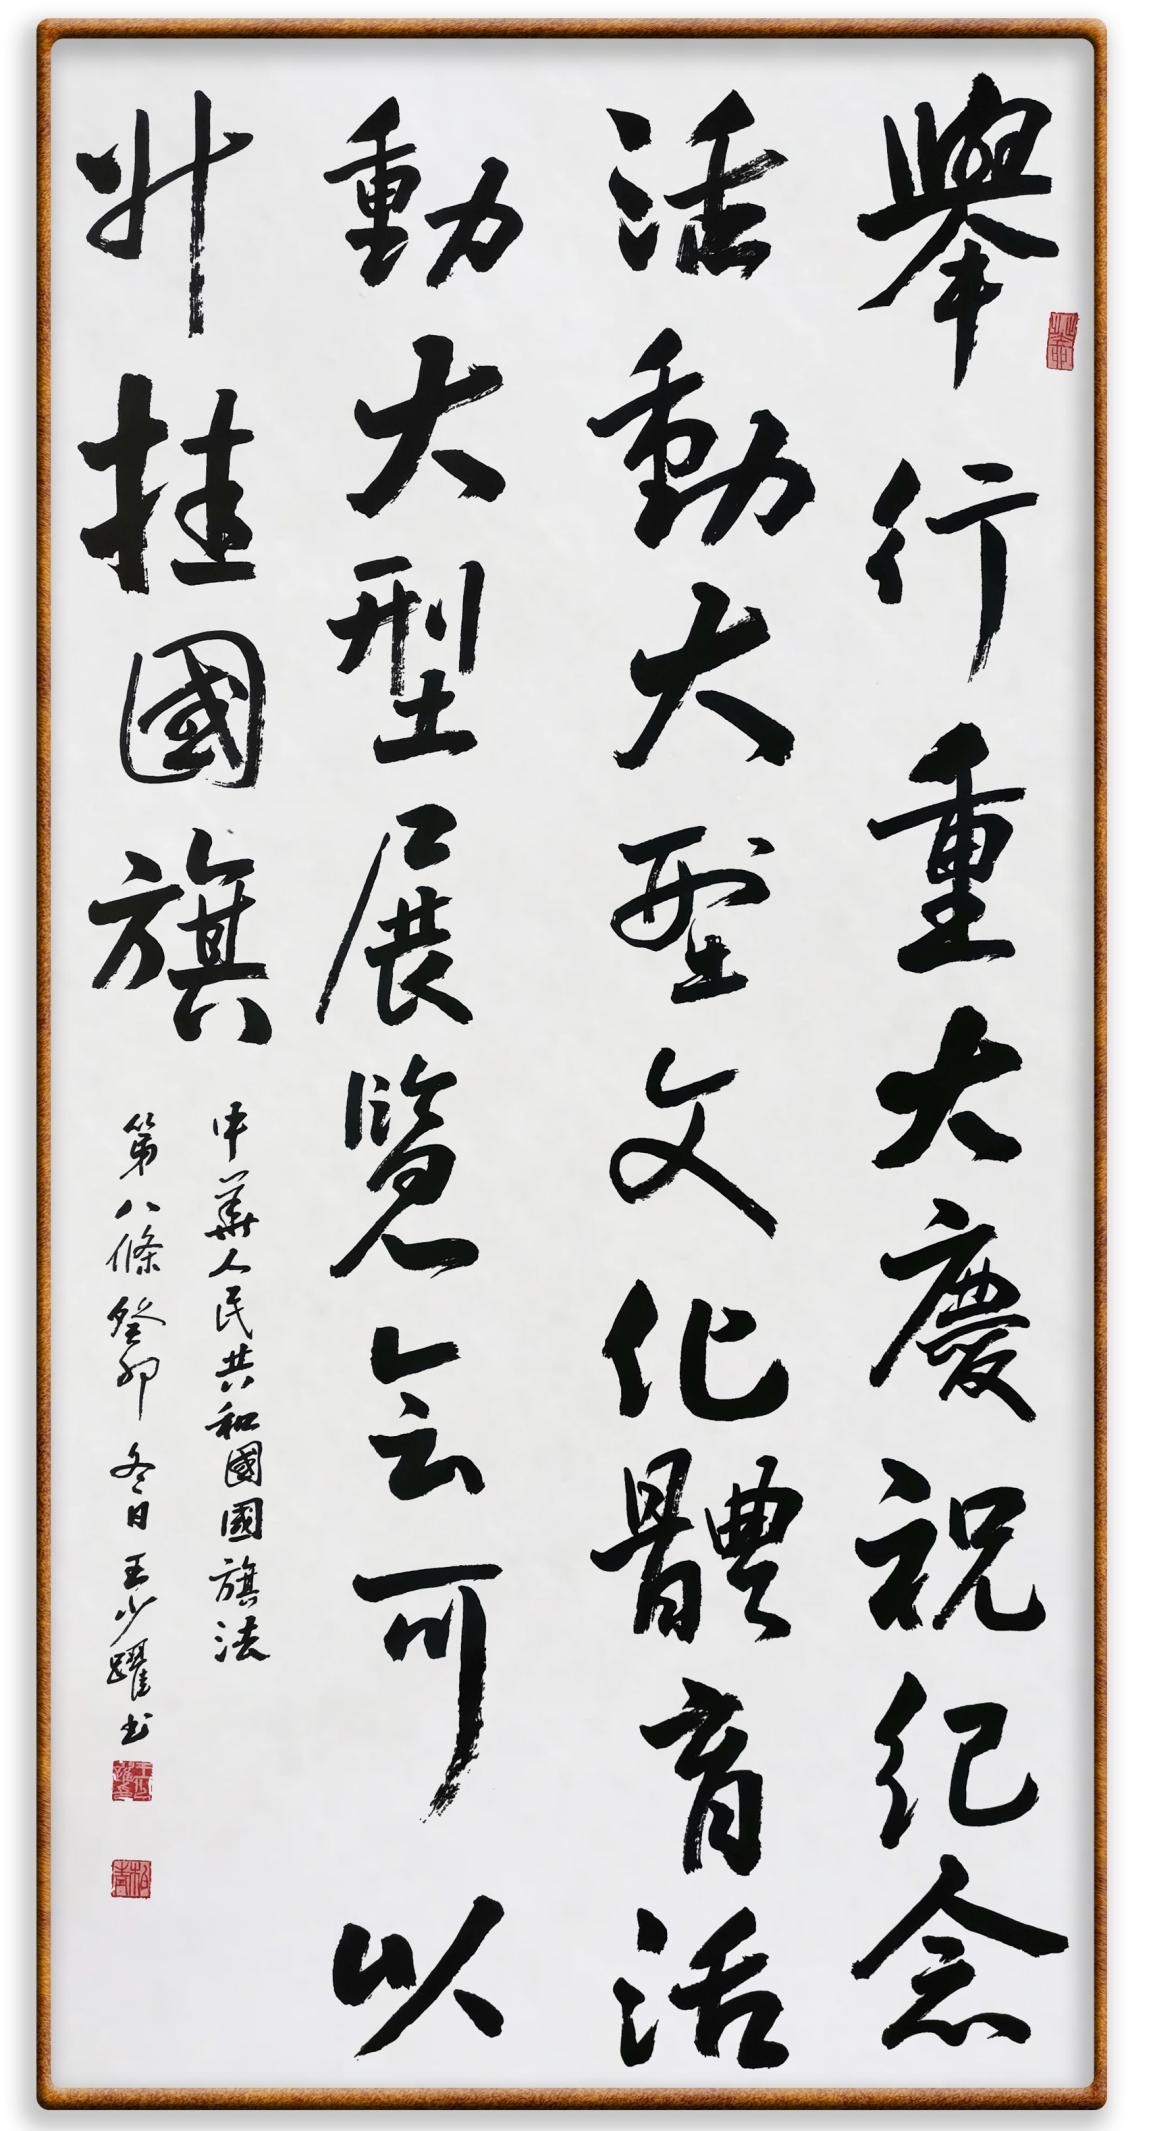 舉行重大慶祝紀念
活動大型文化體育活
動大型展覽会可以
升挂國旗
中華人民共和國國旗法
第八條癸卯冬日王少躍书